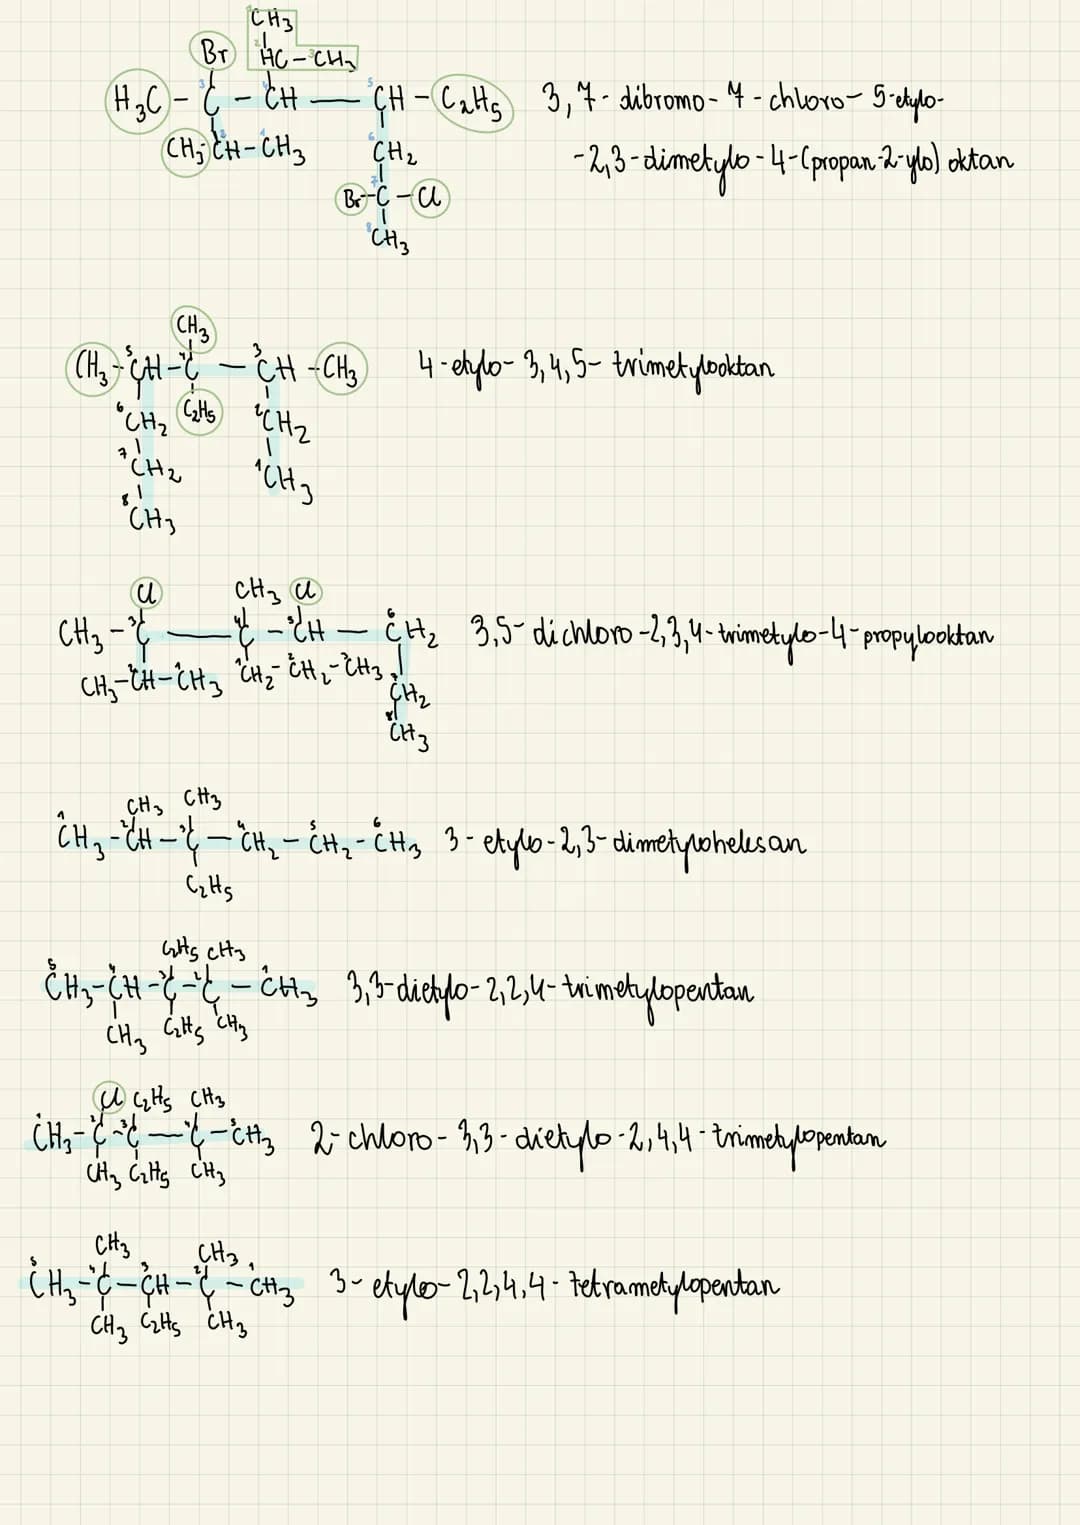 CH3
Br HC-CH3
H3C - C - CH — CH - C2H5 3,7- dibromo- 7 - chloro- 5-etylo-
CH3 CH-CH3 CH2 -2,3-dimetylo-4-(propan-2-ylo) oktan
Br-C-Cl
CH3
CH3
CH3-CH-C — CH-CH3 4-etylo- 3,4,5- trimetylooktan
CH2 C2H5 CH2
CH2 CH3
CH3
Cl CH3 Cl
CH3-C — C - CH — CH2 3,5-dichloro-2,3,4-trimetylo-4-propylooktan
CH3-CH-CH3 CH2-CH2-CH3
CH2
CH3
CH3 CH3
CH3-CH-C-CH2-CH2-CH3 3-etylo-2,3-dimetyloheksan
C2H5
C2H5 CH3
CH3-CH-C-C-CH3 3,3-dietylo-2,2,4-trimetylopentan
CH3 C2H5 CH3
Cl C2H5 CH3
CH3-C-C — C-CH3 2-chloro-3,3-dietylo-2,4,4-trimetylopentan
CH3 C2H5 CH3
CH3 CH3
CH3-C-CH-C-CH3 3-etylo-2,2,4,4-tetrametylopentan
CH3 C2H5 CH3